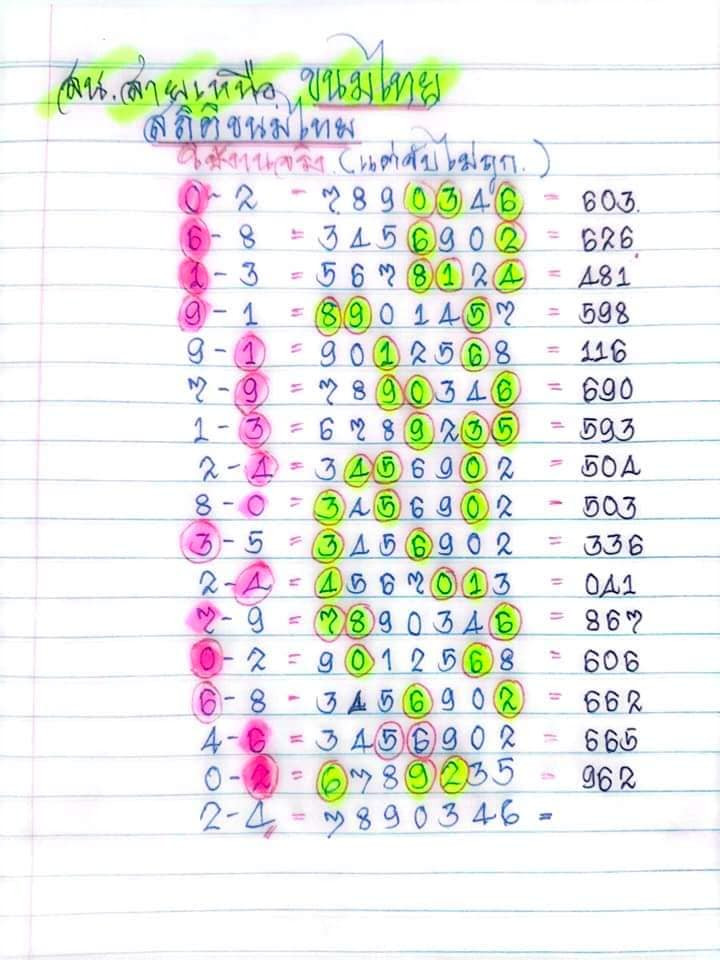 สน.สายเหนือ ขนมไทย
สถิติขนมไทย
ใช้งานจริง.(แต่จับไม่ถูก.)
0-2 - 7890346 = 603.
6-8 = 3456902 = 626
1-3 = 5678124 = 481
9-1 = 8901457 = 598
9-1 = 9012568 = 116
7-9 = 7890346 = 690
1-3 = 6789235 = 593
2-4 = 3456902 = 504
8-0 = 3456902 - 503
3-5 = 3456902 = 336
2-4 = 4567013 = 041
7-9 = 7890346 = 867
0-2 = 9012568 = 606
6-8 - 3456902 = 662
4-6 = 3456902 = 665
0-2 = 6789235 = 962
2-4 = 7890346 =